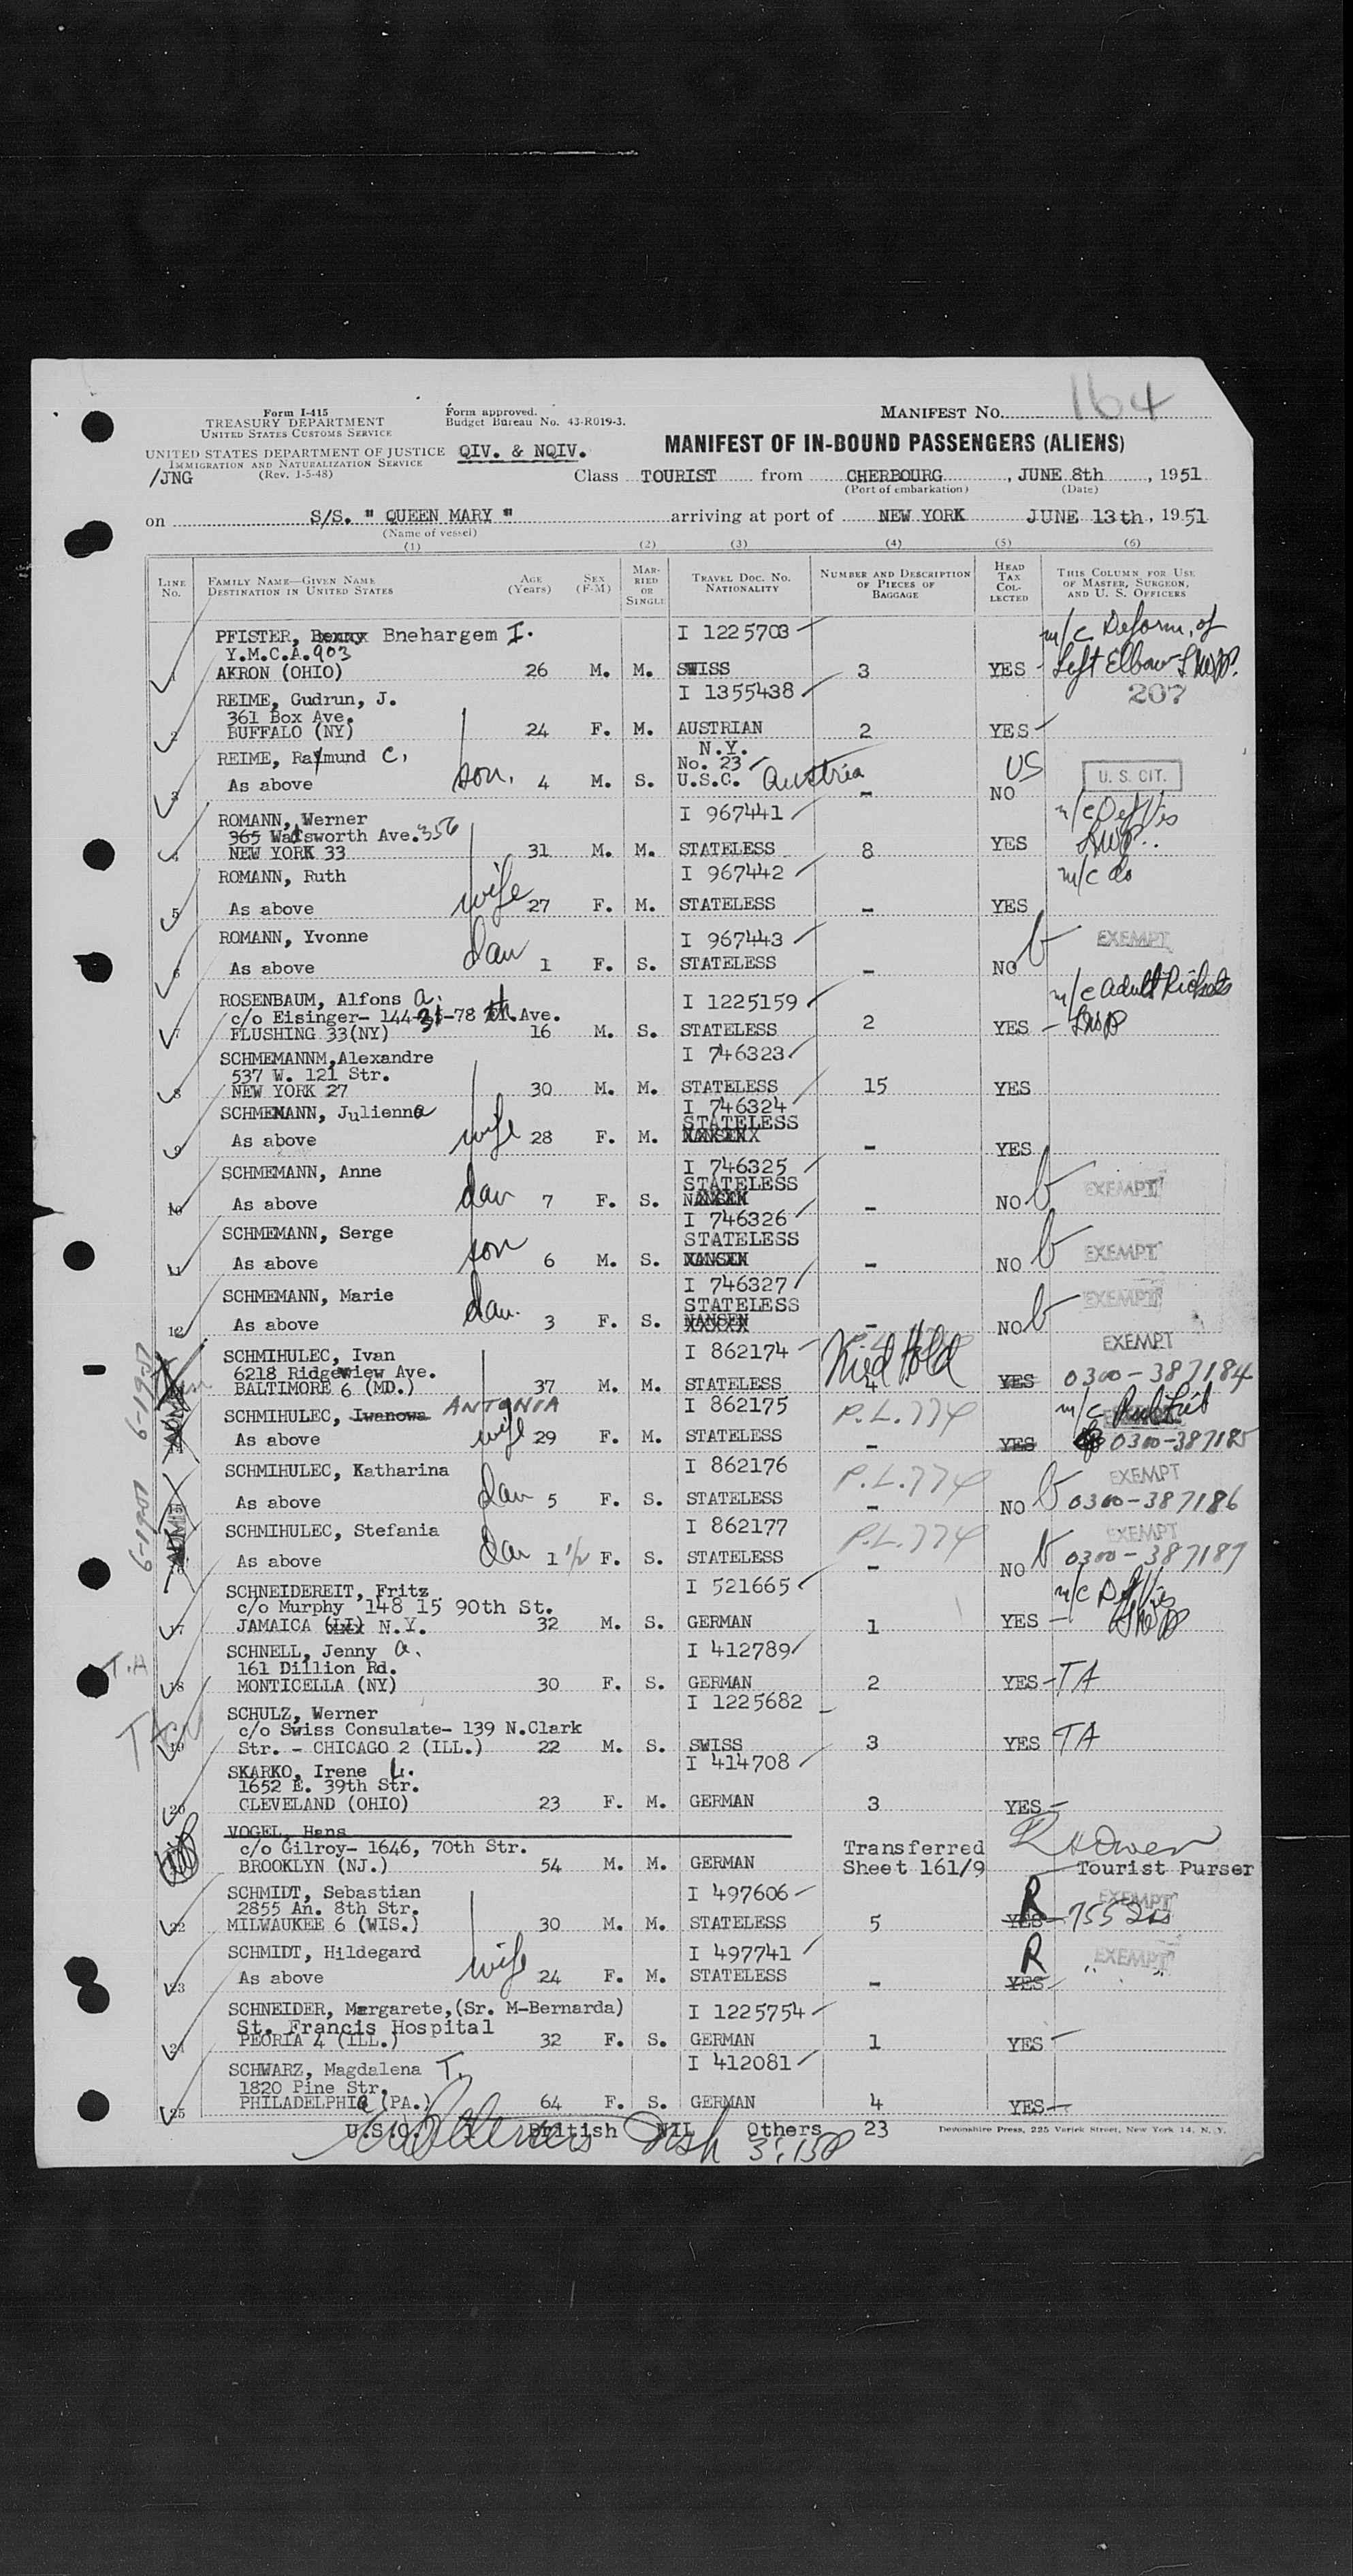 164
Form I-415
TREASURY DEPARTMENT
UNITED STATES CUSTOMS SERVICE
Form approved.
Budget Bureau No. 43-R019-3.
MANIFEST NO.
UNITED STATES DEPARTMENT OF JUSTICE
IMMIGRATION AND NATURALIZATION SERVICE
(Rev. 1-5-48)
/JNG
QIV. & NQIV.
MANIFEST OF IN-BOUND PASSENGERS (ALIENS)
Class TOURIST from CHERBOURG, JUNE 8th, 1951
(Port of embarkation) (Date)
on S/S. " QUEEN MARY " arriving at port of NEW YORK JUNE 13th, 1951
(Name of vessel)
(1) (2) (3) (4) (5) (6)
LINE NO. FAMILY NAME—GIVEN NAME DESTINATION IN UNITED STATES AGE (Years) SEX (F-M) MARRIED OR SINGLE TRAVEL DOC. NO. NATIONALITY NUMBER AND DESCRIPTION OF PIECES OF BAGGAGE HEAD TAX COLLECTED THIS COLUMN FOR USE OF MASTER, SURGEON, AND U. S. OFFICERS
PFISTER, Benny Bnehargem I. I 1225703 m/c Deform. of
Y.M.C.A. 903
1 AKRON (OHIO) 26 M. M. SWISS 3 YES Left Elbow
REIME, Gudrun, J. I 1355438 207
361 Box Ave.
2 BUFFALO (NY) 24 F. M. AUSTRIAN 2 YES
REIME, Raymund C. N.Y. No. 23 US U. S. CIT.
3 As above son. 4 M. S. U.S.C. Austria - NO
ROMANN, Werner I 967441 m/c Def Vis
365 Wadsworth Ave. 356
4 NEW YORK 33 31 M. M. STATELESS 8 YES
ROMANN, Ruth I 967442 m/c do
5 As above wife 27 F. M. STATELESS - YES
ROMANN, Yvonne I 967443 EXEMPT
6 As above dau 1 F. S. STATELESS - NO
ROSENBAUM, Alfons A. I 1225159 m/c adult Rickets
c/o Eisinger- 144-31-78 th. Ave.
7 FLUSHING 33(NY) 16 M. S. STATELESS 2 YES
SCHMEMANNM,Alexandre I 746323
537 W. 121 Str.
8 NEW YORK 27 30 M. M. STATELESS 15 YES
SCHMEMANN, Julienna I 746324
STATELESS
9 As above wife 28 F. M. NANSEN - YES
SCHMEMANN, Anne I 746325
STATELESS EXEMPT
10 As above dau 7 F. S. NANSEN - NO
SCHMEMANN, Serge I 746326
STATELESS EXEMPT
11 As above son 6 M. S. NANSEN - NO
SCHMEMANN, Marie I 746327
STATELESS EXEMPT
12 As above dau. 3 F. S. NANSEN - NO
SCHMIHULEC, Ivan I 862174 Hold EXEMPT
6218 Ridgewiew Ave.
BALTIMORE 6 (MD.) 37 M. M. STATELESS 4 YES 0300-387184
SCHMIHULEC, Iwanowa ANTONIA I 862175 P.L.774 m/c
As above wife 29 F. M. STATELESS - YES 0300-387185
SCHMIHULEC, Katharina I 862176 P.L.774 EXEMPT
As above dau 5 F. S. STATELESS - NO 0300-387186
SCHMIHULEC, Stefania I 862177 P.L.774 EXEMPT
As above dau 1 1/2 F. S. STATELESS - NO 0300-387187
SCHNEIDEREIT, Fritz I 521665 m/c Def Vis
c/o Murphy 148 15 90th St.
17 JAMAICA (LI) N.Y. 32 M. S. GERMAN 1 YES
SCHNELL, Jenny A. I 412789
161 Dillion Rd.
18 MONTICELLA (NY) 30 F. S. GERMAN 2 YES TA
SCHULZ, Werner I 1225682
c/o Swiss Consulate- 139 N.Clark
19 Str. - CHICAGO 2 (ILL.) 22 M. S. SWISS 3 YES TA
SKARKO, Irene L. I 414708
1652 E. 39th Str.
20 CLEVELAND (OHIO) 23 F. M. GERMAN 3 YES
VOGEL, Hans
c/o Gilroy- 1646, 70th Str. Transferred
BROOKLYN (NJ.) 54 M. M. GERMAN Sheet 161/9 Tourist Purser
SCHMIDT, Sebastian I 497606 R EXEMPT
2855 An. 8th Str.
22 MILWAUKEE 6 (WIS.) 30 M. M. STATELESS 5 YES
SCHMIDT, Hildegard I 497741 R EXEMPT
23 As above wife 24 F. M. STATELESS - YES
SCHNEIDER, Margarete,(Sr. M-Bernarda) I 1225754
St. Francis Hospital
24 PEORIA 4 (ILL.) 32 F. S. GERMAN 1 YES
SCHWARZ, Magdalena T. I 412081
1820 Pine Str.
25 PHILADELPHIA (PA.) 64 F. S. GERMAN 4 YES
U.S.C. 1 British NIL Others 23
Devonshire Press, 225 Varick Street, New York 14, N. Y.
3:15P